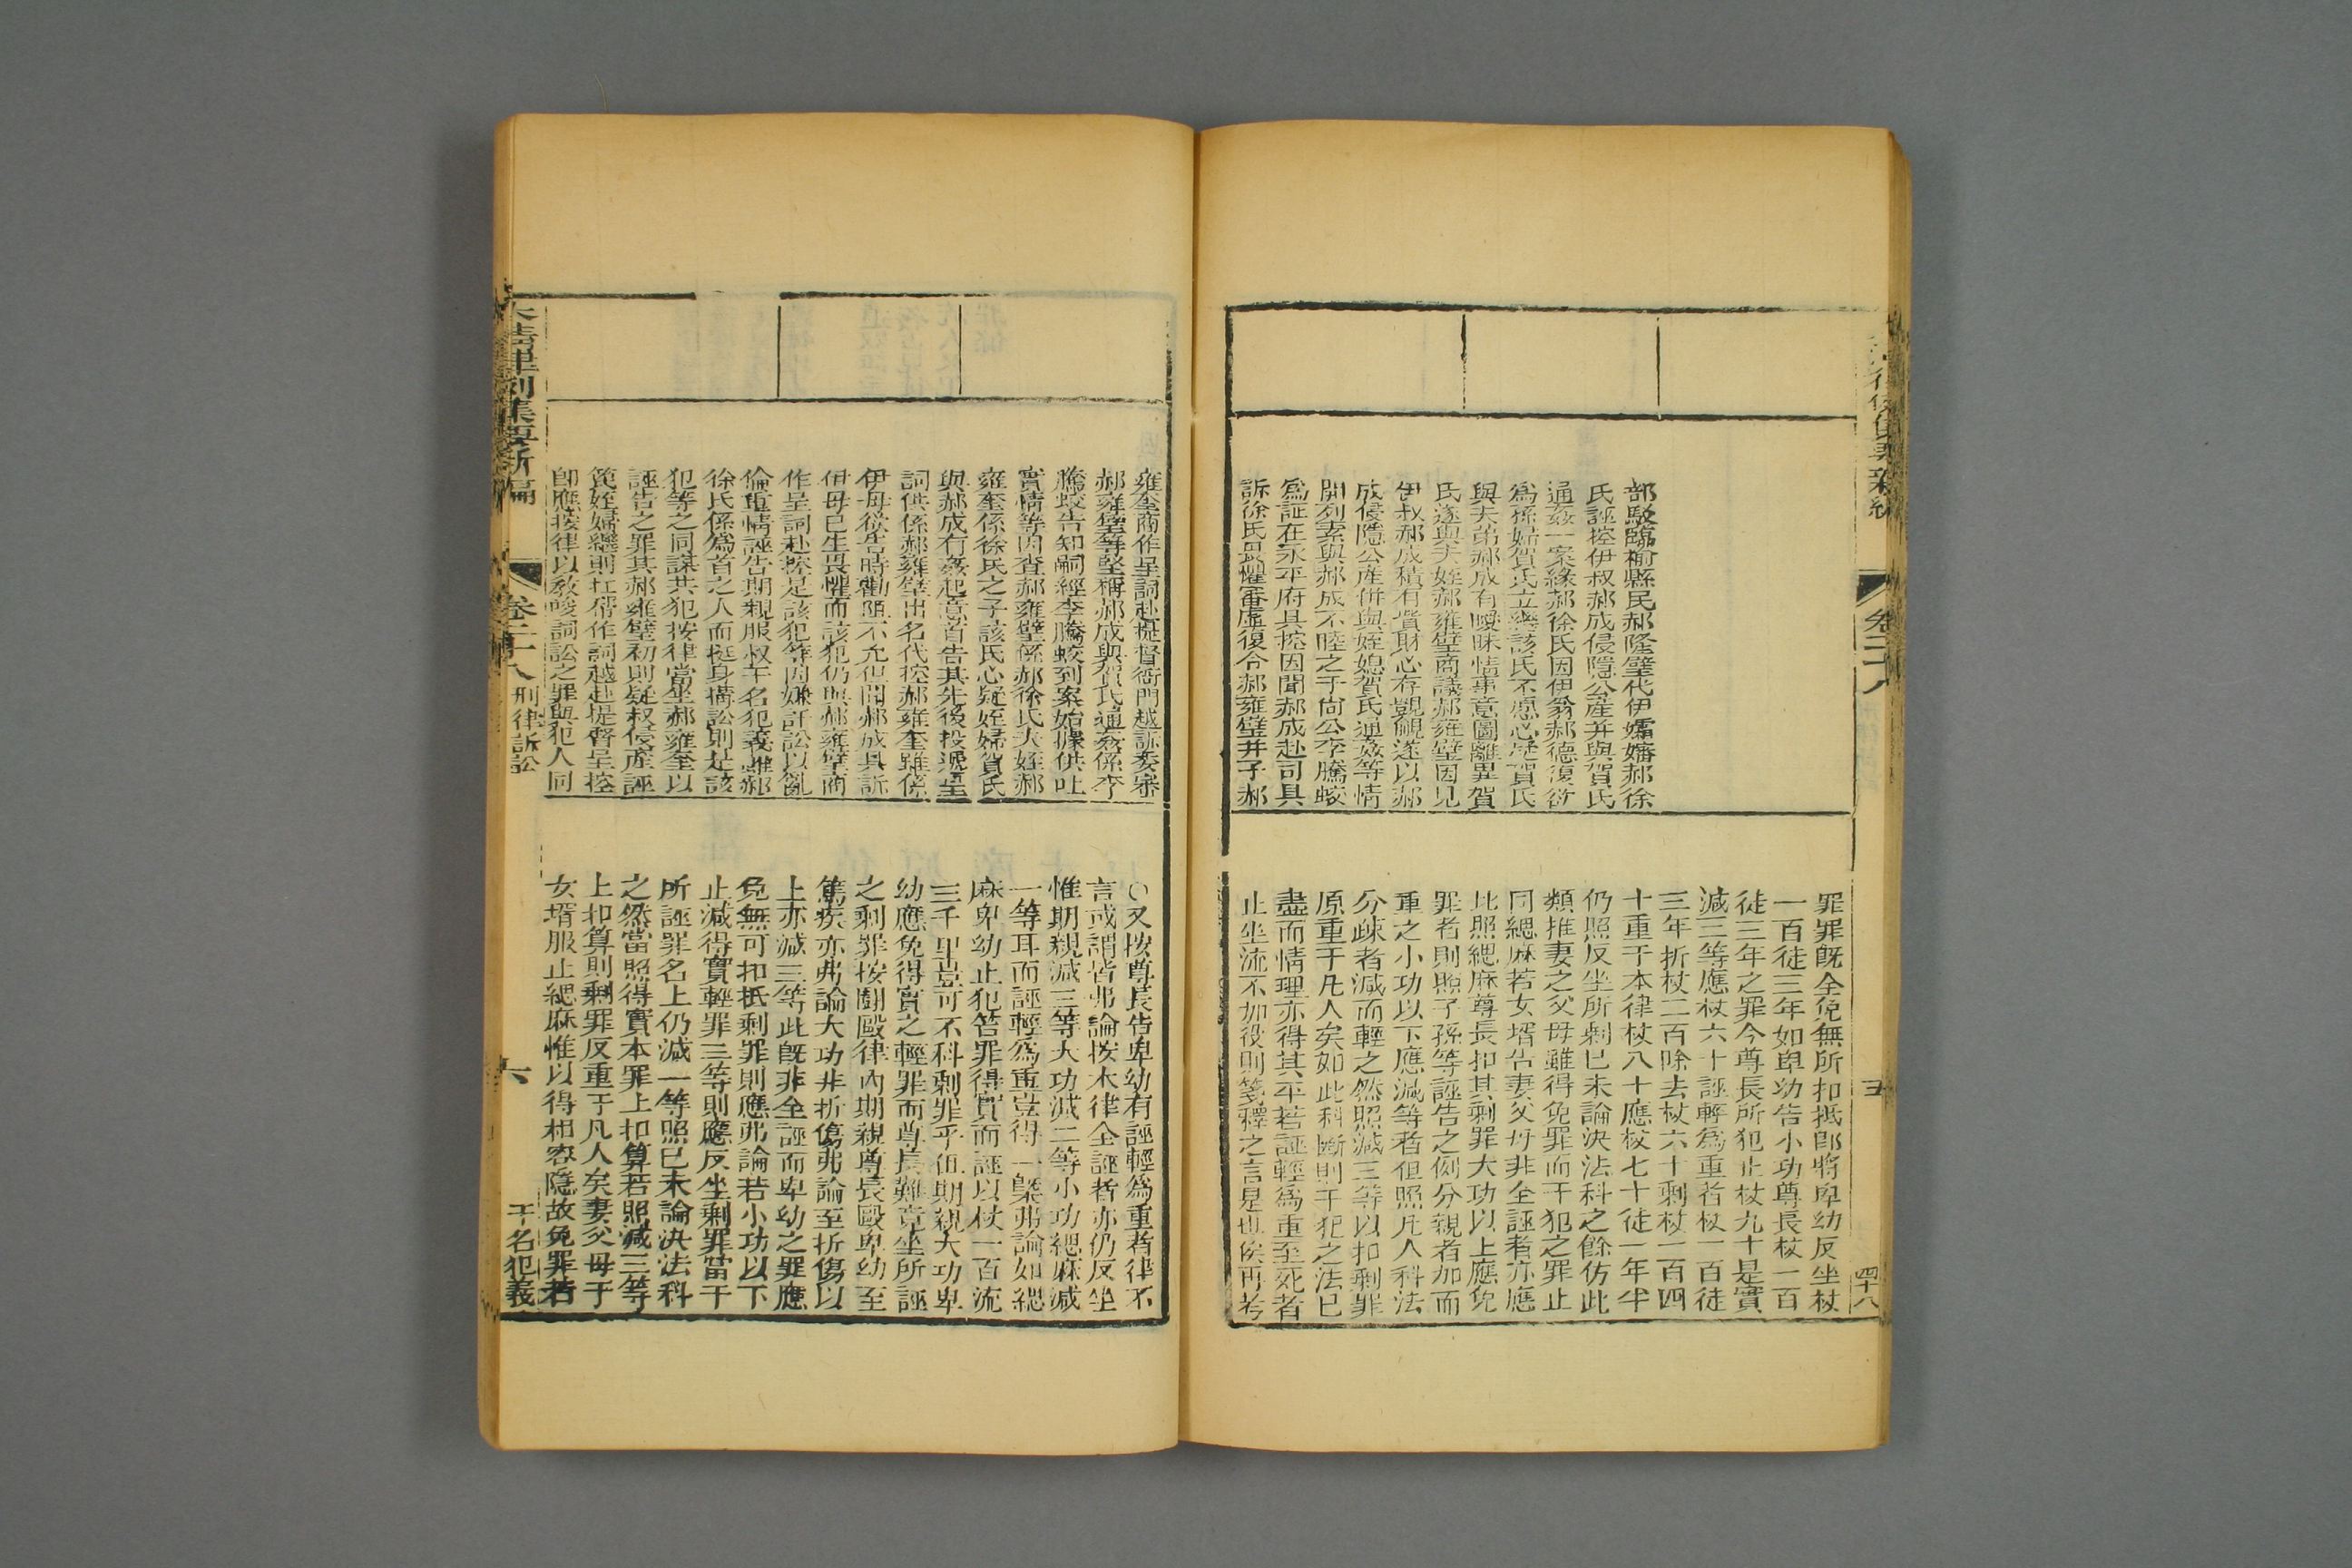 部駁臨榆縣民郝隆壁代伊孀嬸郝徐
氏誣控伊叔郝成侵隱公產并與賀氏
通姦一案緣郝徐氏因伊翁郝德復欲
為孫婦賀氏立繼該氏不愿心疑賀氏
與夫弟郝成有曖昧情事意圖離異賀
氏遂與夫姪郝雍壁商議郝雍壁因見
伊叔郝成積有貲財心存覬覦遂以郝
成侵隱公產併與姪媳賀氏通姦等情
開列素與郝成不睦之于尚公李騰蛟
為証在永平府具控因聞郝成赴司具
訴徐氏畏懼審虛復令郝雍壁并子郝
罪罪既全免無所扣抵即將卑幼反坐杖
一百徒三年如卑幼告小功尊長杖一百
徒三年之罪今尊長所犯止杖九十是實
減三等應杖六十誣輕為重者杖一百徒
三年折杖二百除去杖六十剩杖一百四
十重于本律杖八十應杖七十徒一年半
仍照反坐所剩已未論決法科之餘仿此
類推妻之父母雖得免罪而干犯之罪止
同緦麻若女壻告妻父母非全誣者亦應
比照緦麻尊長扣其剩罪大功以上應免
罪者則照子孫等誣告之例分親者加而
重之小功以下應減等者但照凡人科法
分疎者減而輕之然照減三等以扣剩罪
原重于凡人矣如此科斷則干犯之法已
盡而情理亦得其平若誣輕為重至死者
止坐流不加役則箋釋之言是也俟再考
卷二十八
五
四十八
雍奎商作呈詞赴提督衙門越訴委審
郝雍壁等堅稱郝成與賀氏通姦係李
騰蛟告知嗣經李騰蛟到案始據供吐
實情等因查郝雍壁係郝徐氏夫姪郝
雍奎係徐氏之子該氏心疑姪婦賀氏
與郝成有姦起意首告其先後投遞呈
詞供係郝雍壁出名代控郝雍奎雖係
伊母從告時勸阻不允但聞郝成具訴
伊母已生畏懼而該犯仍與郝雍壁商
作呈詞赴控是該犯等因嫌訐訟以亂
倫重情誣告期親服叔干名犯義雖郝
徐氏係為首之人而挺身搆訟則是該
犯等之同謀共犯按律當坐郝雍奎以
誣告之罪其郝雍壁初則疑叔侵產誣
衊姪婦繼則扛幫作詞越赴提督呈控
即應按律以教唆詞訟之罪與犯人同
○又按尊長告卑幼有誣輕為重者律不
言或謂皆弗論按本律全誣者亦仍反坐
惟期親減三等大功減二等小功緦麻減
一等耳而誣輕為重豈得一槩弗論如緦
麻卑幼止犯笞罪得實而誣以杖一百流
三千里豈可不科剩罪乎但期親大功卑
幼應免得實之輕罪而尊長難竟坐所誣
之剩罪按鬬毆律內期親尊長毆卑幼至
篤疾亦弗論大功非折傷弗論至折傷以
上亦減三等此既非全誣而卑幼之罪應
免無可扣抵剩罪則應弗論若小功以下
止減得實輕罪三等則應反坐剩罪當于
所誣罪名上仍減一等照已未論決法科
之然當照得實本罪上扣算若照減三等
上扣算則剩罪反重于凡人矣妻父母于
女壻服止緦麻惟以得相容隱故免罪若
大清律例集要新編
卷二十八
刑律訴訟
六
干名犯義